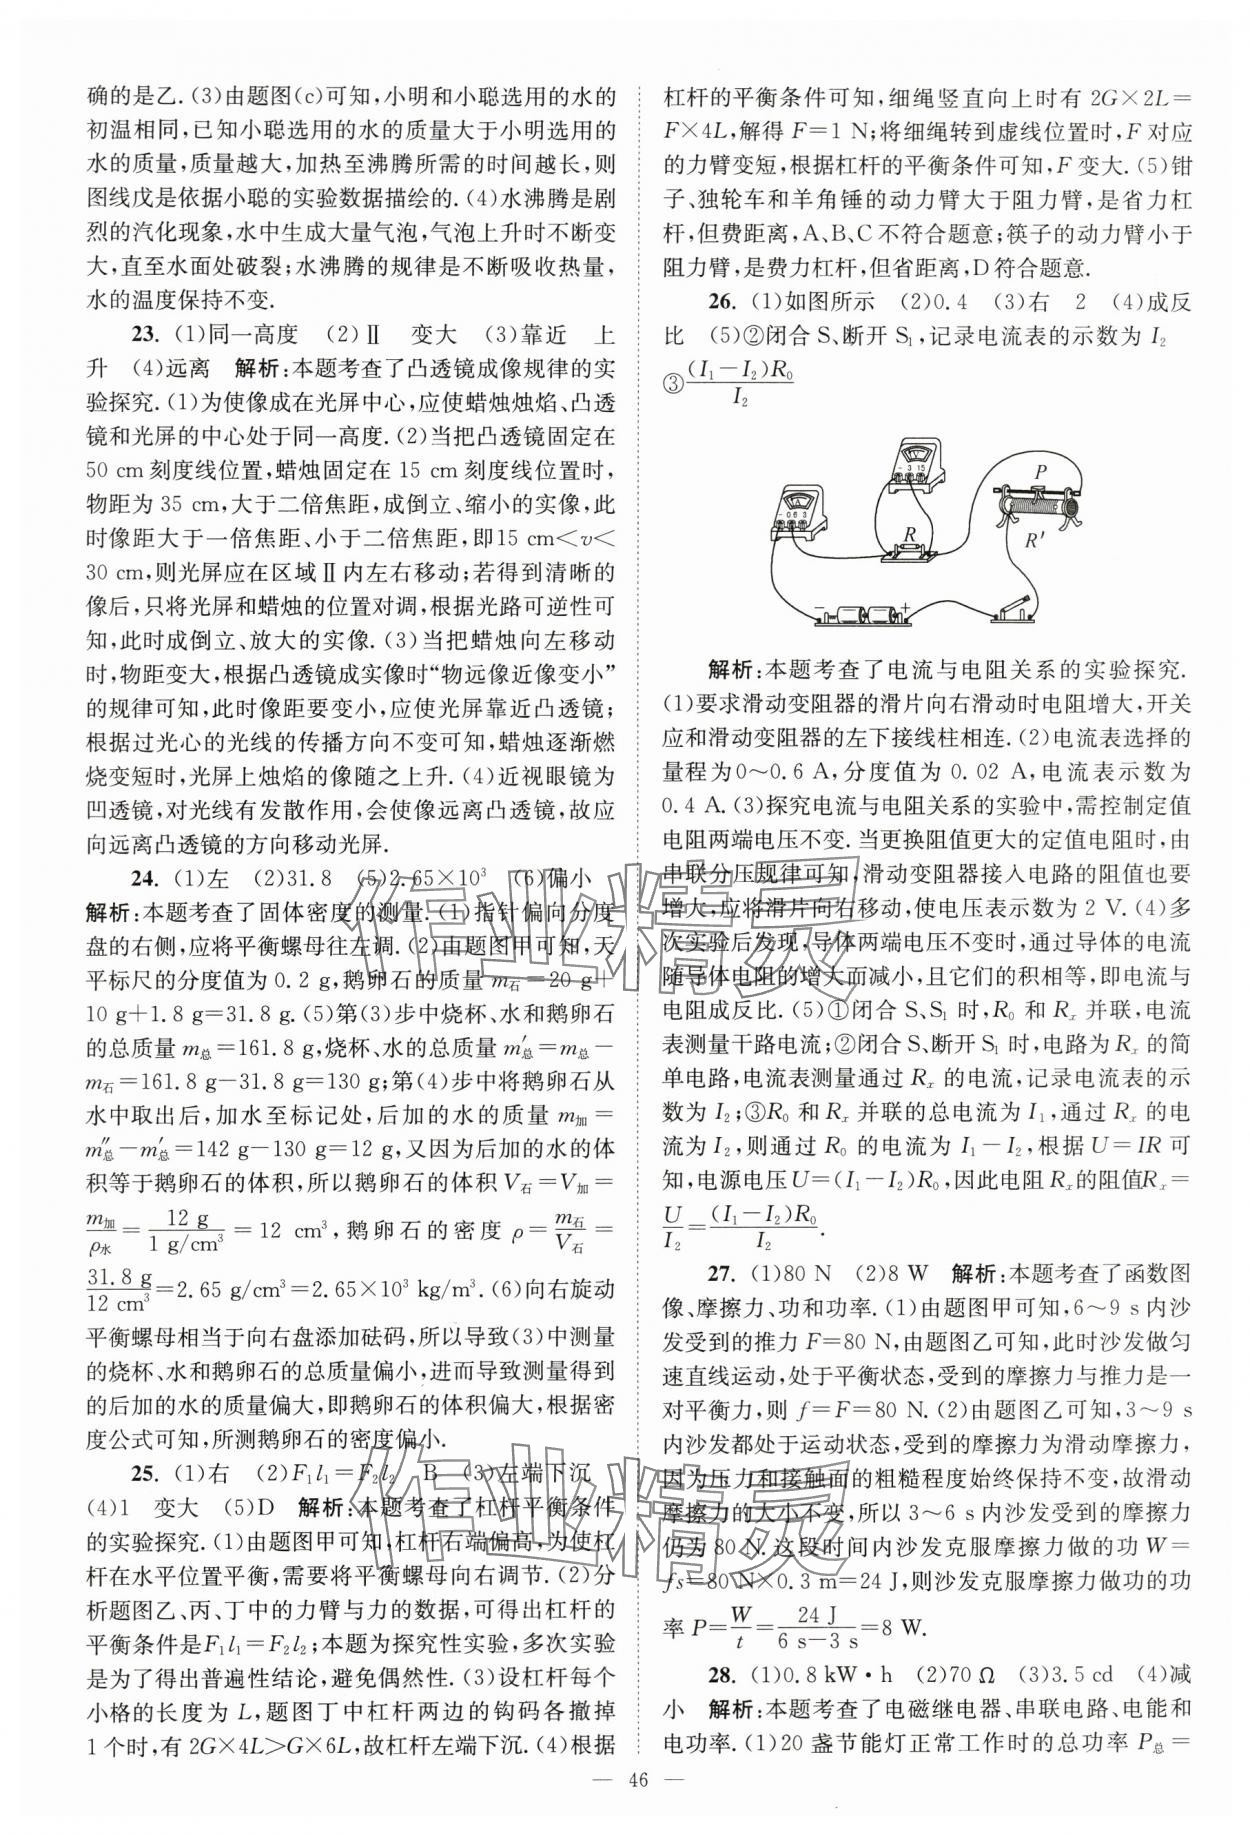 确的是乙.(3)由题图(c)可知,小明和小聪选用的水的
初温相同,已知小聪选用的水的质量大于小明选用的
水的质量,质量越大,加热至沸腾所需的时间越长,则
图线戊是依据小聪的实验数据描绘的.(4)水沸腾是剧
烈的汽化现象,水中生成大量气泡,气泡上升时不断变
大,直至水面处破裂;水沸腾的规律是不断吸收热量,
水的温度保持不变.
23. (1)同一高度 (2)Ⅱ 变大 (3)靠近 上
升 (4)远离 解析:本题考查了凸透镜成像规律的实
验探究.(1)为使像成在光屏中心,应使蜡烛烛焰、凸透
镜和光屏的中心处于同一高度.(2)当把凸透镜固定在
50 cm刻度线位置,蜡烛固定在15 cm刻度线位置时,
物距为35 cm,大于二倍焦距,成倒立、缩小的实像,此
时像距大于一倍焦距、小于二倍焦距,即15 cm<v<
30 cm,则光屏应在区域Ⅱ内左右移动;若得到清晰的
像后,只将光屏和蜡烛的位置对调,根据光路可逆性可
知,此时成倒立、放大的实像.(3)当把蜡烛向左移动
时,物距变大,根据凸透镜成实像时“物远像近像变小”
的规律可知,此时像距要变小,应使光屏靠近凸透镜;
根据过光心的光线的传播方向不变可知,蜡烛逐渐燃
烧变短时,光屏上烛焰的像随之上升.(4)近视眼镜为
凹透镜,对光线有发散作用,会使像远离凸透镜,故应
向远离凸透镜的方向移动光屏.
24. (1)左 (2)31.8 (5)2.65×10³ (6)偏小
解析:本题考查了固体密度的测量.(1)指针偏向分度
盘的右侧,应将平衡螺母往左调.(2)由题图甲可知,天
平标尺的分度值为0.2 g,鹅卵石的质量m石=20 g+
10 g+1.8 g=31.8 g.(5)第(3)步中烧杯、水和鹅卵石
的总质量m总=161.8 g,烧杯、水的总质量m′总=m总−
m石=161.8 g−31.8 g=130 g;第(4)步中将鹅卵石从
水中取出后,加水至标记处,后加的水的质量m加=
m″总−m′总=142 g−130 g=12 g,又因为后加的水的体
积等于鹅卵石的体积,所以鹅卵石的体积V石=V加=
m加/ρ水=12 g/1 g/cm³=12 cm³,鹅卵石的密度ρ=m石/V石=
31.8 g/12 cm³=2.65 g/cm³=2.65×10³ kg/m³.(6)向右旋动
平衡螺母相当于向右盘添加砝码,所以导致(3)中测量
的烧杯、水和鹅卵石的总质量偏小,进而导致测量得到
的后加的水的质量偏大,即鹅卵石的体积偏大,根据密
度公式可知,所测鹅卵石的密度偏小.
25. (1)右 (2)F₁l₁=F₂l₂ B (3)左端下沉
(4)1 变大 (5)D 解析:本题考查了杠杆平衡条件
的实验探究.(1)由题图甲可知,杠杆右端偏高,为使杠
杆在水平位置平衡,需要将平衡螺母向右调节.(2)分
析题图乙、丙、丁中的力臂与力的数据,可得出杠杆的
平衡条件是F₁l₁=F₂l₂;本题为探究性实验,多次实验
是为了得出普遍性结论,避免偶然性.(3)设杠杆每个
小格的长度为L,题图丁中杠杆两边的钩码各撤掉
1个时,有2G×4L>G×6L,故杠杆左端下沉.(4)根据
杠杆的平衡条件可知,细绳竖直向上时有2G×2L=
F×4L,解得F=1 N;将细绳转到虚线位置时,F对应
的力臂变短,根据杠杆的平衡条件可知,F变大.(5)钳
子、独轮车和羊角锤的动力臂大于阻力臂,是省力杠
杆,但费距离,A、B、C不符合题意;筷子的动力臂小于
阻力臂,是费力杠杆,但省距离,D符合题意.
26. (1)如图所示 (2)0.4 (3)右 2 (4)成反
比 (5)②闭合S、断开S₁,记录电流表的示数为I₂
③(I₁−I₂)R₀/I₂
V
- 3 15
A
- 0.6 3
R
P
R′
− +
解析:本题考查了电流与电阻关系的实验探究.
(1)要求滑动变阻器的滑片向右滑动时电阻增大,开关
应和滑动变阻器的左下接线柱相连.(2)电流表选择的
量程为0~0.6 A,分度值为0.02 A,电流表示数为
0.4 A.(3)探究电流与电阻关系的实验中,需控制定值
电阻两端电压不变.当更换阻值更大的定值电阻时,由
串联分压规律可知,滑动变阻器接入电路的阻值也要
增大,应将滑片向右移动,使电压表示数为2 V.(4)多
次实验后发现,导体两端电压不变时,通过导体的电流
随导体电阻的增大而减小,且它们的积相等,即电流与
电阻成反比.(5)①闭合S、S₁时,R₀和Rₓ并联,电流
表测量干路电流;②闭合S、断开S₁时,电路为Rₓ的简
单电路,电流表测量通过Rₓ的电流,记录电流表的示
数为I₂;③R₀和Rₓ并联的总电流为I₁,通过Rₓ的电
流为I₂,则通过R₀的电流为I₁−I₂,根据U=IR可
知,电源电压U=(I₁−I₂)R₀,因此电阻Rₓ的阻值Rₓ=
U/I₂=(I₁−I₂)R₀/I₂.
27. (1)80 N (2)8 W 解析:本题考查了函数图
像、摩擦力、功和功率.(1)由题图甲可知,6~9 s内沙
发受到的推力F=80 N,由题图乙可知,此时沙发做匀
速直线运动,处于平衡状态,受到的摩擦力与推力是一
对平衡力,则f=F=80 N.(2)由题图乙可知,3~9 s
内沙发都处于运动状态,受到的摩擦力为滑动摩擦力,
因为压力和接触面的粗糙程度始终保持不变,故滑动
摩擦力的大小不变,所以3~6 s内沙发受到的摩擦力
仍为80 N.这段时间内沙发克服摩擦力做的功W=
fs=80 N×0.3 m=24 J,则沙发克服摩擦力做功的功
率P=W/t=24 J/6 s−3 s=8 W.
28. (1)0.8 kW·h (2)70 Ω (3)3.5 cd (4)减
小 解析:本题考查了电磁继电器、串联电路、电能和
电功率.(1)20盏节能灯正常工作时的总功率P总=
— 46 —
作业精灵
作业精灵